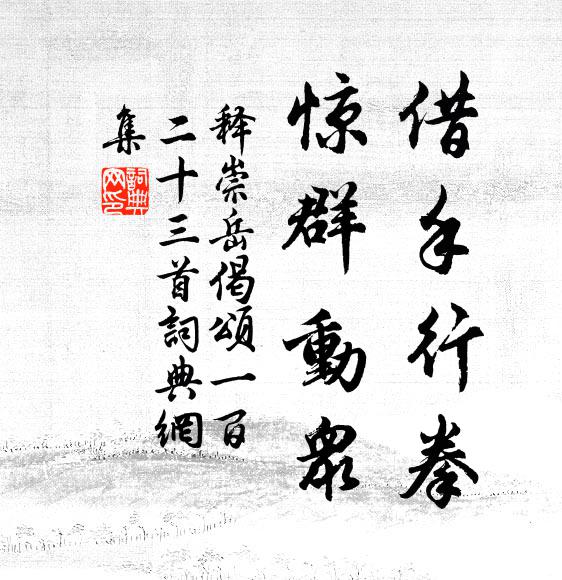 借手行拳
惊群動眾
释崇岳偈頌一百
二十三首詞典網
集
詞典网印